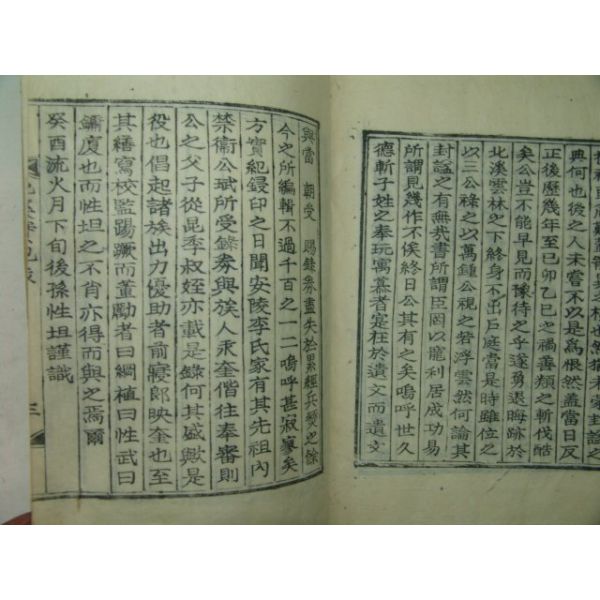 典何也後之人未嘗不以是爲恨然蓋當日反
正後歷幾年至己卯乙巳之禍善類之斬伐酷
矣公豈不能早見而豫待之乎遂勇退晦跡於
北溪雲林之下終身不出戶庭當是時雖位之
以三公祿之以萬鍾公視之若浮雲然何論其
封謚之有無哉書所謂臣罔以寵利居成功易
所謂見幾作不俟終日公其有之矣嗚呼世久
德斬子姓之奉玩寓慕者寔在於遺文而遺文
與當 朝受 賜錄券盡失於累經兵燹之餘
今之所編輯不過千百之一二嗚呼甚寂寥矣
方實紀鋟印之日聞安陵李氏家有其先祖內
禁衛公斌所受錄券與族人永奎偕往奉審則
公之父子從昆季叔姪亦載是錄何其盛歟是
役也倡起諸族出力優助者前寢郞映奎也至
其繕寫校監踢蹶而董勵者曰綱植曰性武曰
鏞廈也而性坦之不肖亦得而與之焉爾
癸酉流火月下旬後孫性坦謹識